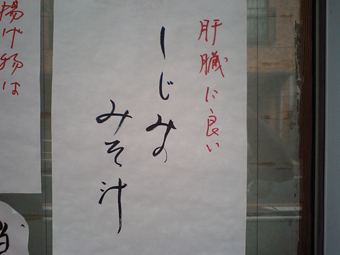 肝臓に良い
しじみの
みそ汁
揚げ物は